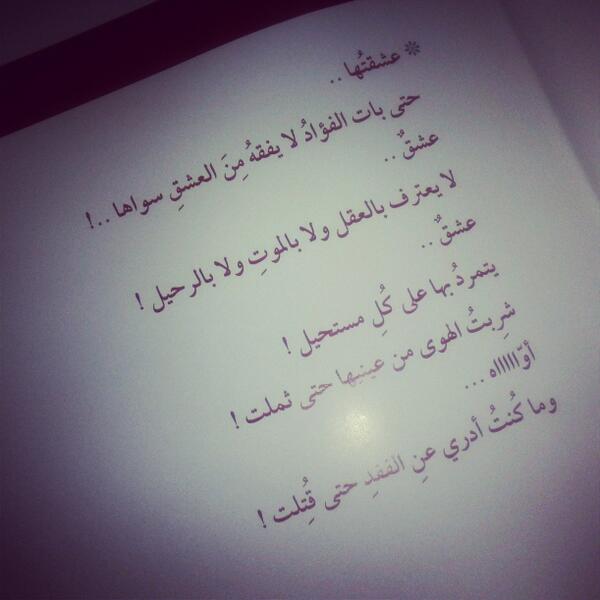 * عشقتُها ..
حتى بات الفؤادُ لا يفقهُ مِنَ العشقِ سواها ..!
عشقٌ ..
لا يعترف بالعقل ولا بالموتِ ولا بالرحيل !
عشقٌ ..
يتمردُ بها على كُلِ مستحيل !
شرِبتُ الهوى من عينيها حتى ثملت !
أوّاااااه ...
وما كُنتُ أدري عنِ الفقدِ حتى قُتِلت !